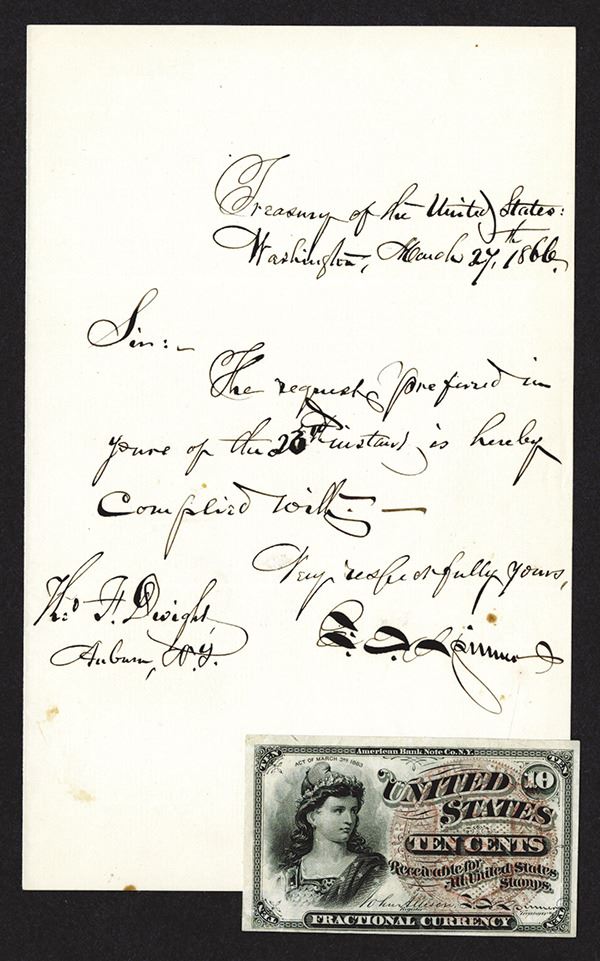 Treasury of the United States:
Washington, March 27th, 1866.
Sir:-
The request preferred in
yours of the 23rd instant is hereby
Complied with. —
Very respectfully yours,
Tho. F. Dwight,
Auburn, N.Y.
American Bank Note Co. N.Y.
TEN
TEN
ACT OF MARCH 3RD 1863
10
UNITED
STATES
TEN CENTS
Receivable for
All United States
Stamps.
John Allison
Register
Treasurer
FRACTIONAL CURRENCY